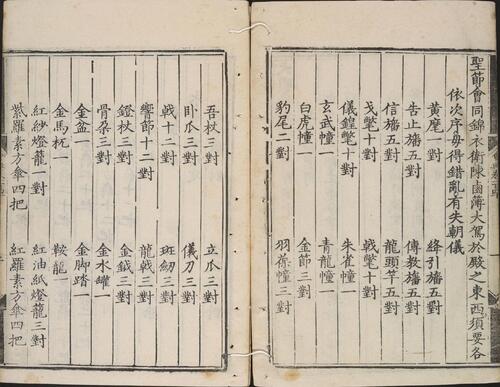 聖節會同錦衣衛陳鹵簿大駕於殿之東西須要各
依次序毋得錯亂有失朝儀
黄麾一對 絳引旛五對
告止旛五對 傳教旛五對
信旛五對 龍頭竿五對
戈氅十對 戟氅十對
儀鍠氅十對 朱雀幢一
玄武幢一 青龍幢一
白虎幢一 金節三對
豹尾二對 羽葆幢三對
吾杖三對 立瓜三對
卧瓜三對 儀刀三對
戟十二對 班劒三對
響節十二對 龍戟三對
鐙杖三對 金鉞三對
骨朶三對 金水罐一
金盆一 金脚踏一
金馬杌一 鞍籠一
紅紗燈籠一對 紅油紙燈籠三對
紫羅素方傘四把 紅羅素方傘四把